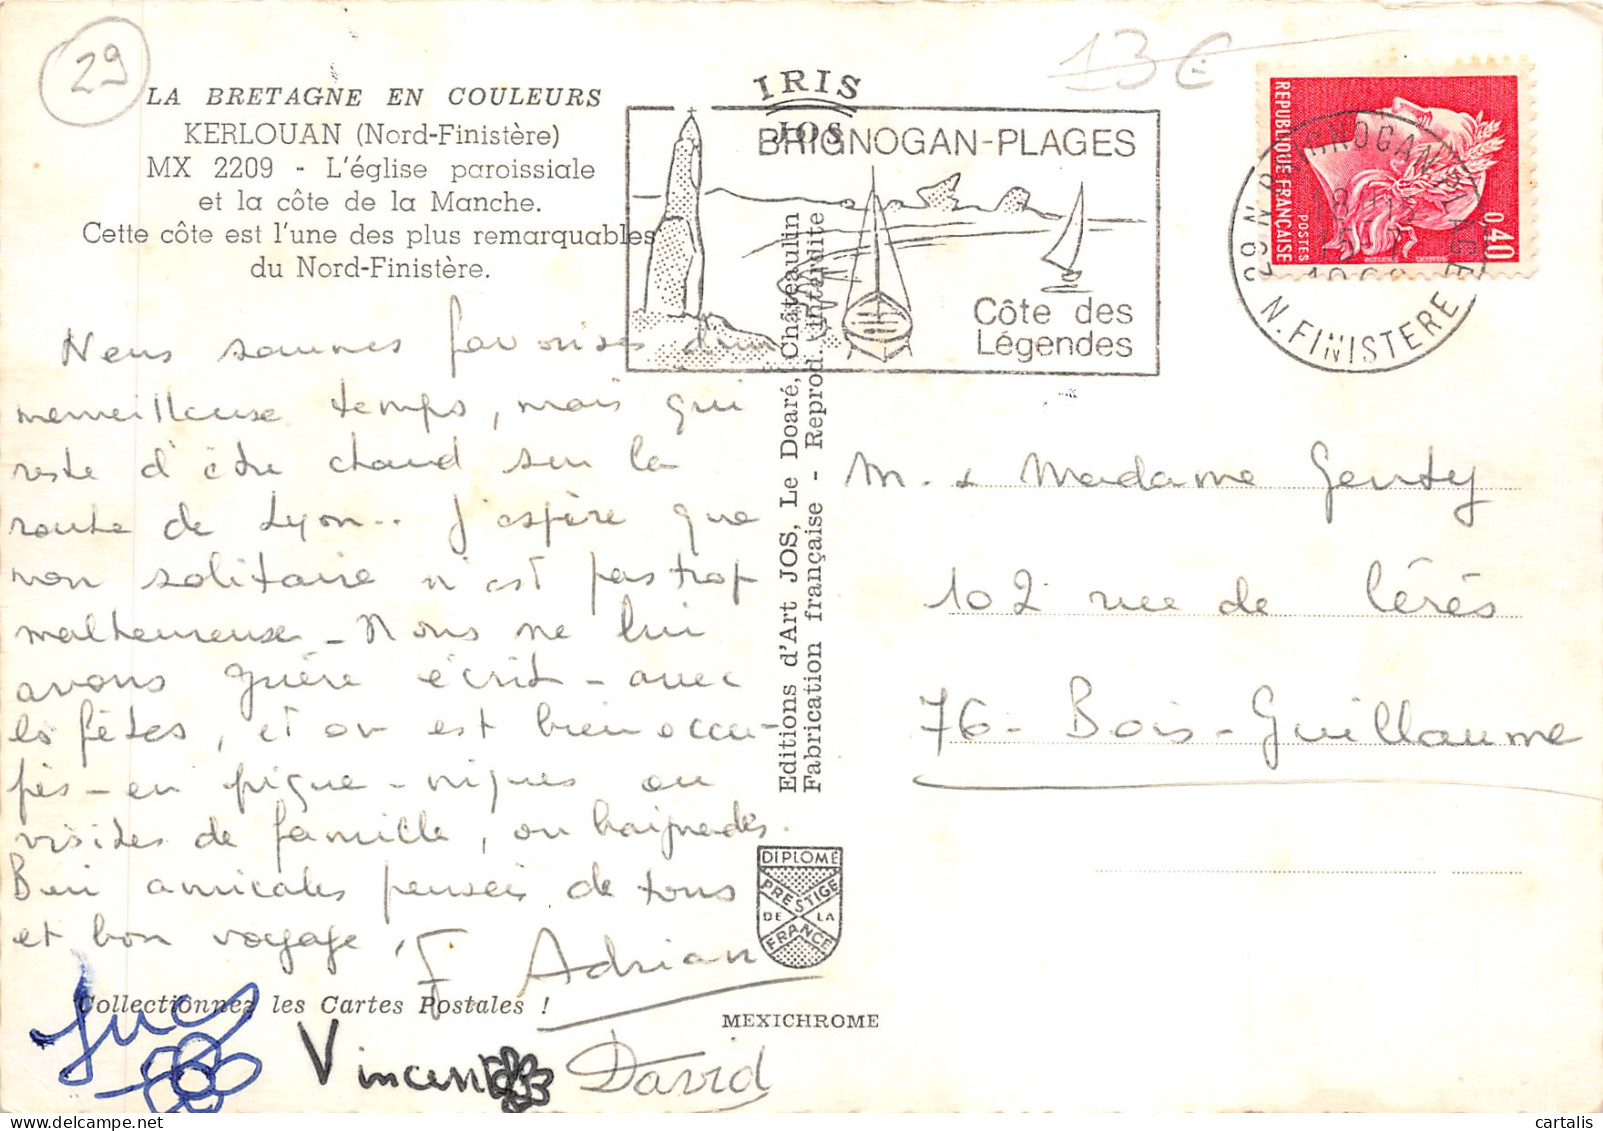 29
13€
LA BRETAGNE EN COULEURS
KERLOUAN (Nord-Finistère)
MX 2209 - L'église paroissiale
et la côte de la Manche.
Cette côte est l'une des plus remarquables
du Nord-Finistère.
IRIS
JOS
BRIGNOGAN-PLAGES
Côte des
Légendes
REPUBLIQUE FRANÇAISE
POSTES
0,40
29 N BRIGNOGAN PLAGES
N. FINISTERE
Nous sommes favorisés d'un
merveilleuse temps, mais qui
reste d'être chaud sur la
route de Lyon.. J'espère que
mon solitaire n'est pas trop
malheureuse - Nous ne lui
avons guère écrit - avec
les fêtes, et on est bien occu-
pés - en pique-niques ou
visites de famille, ou baignades.
Bien amicales pensées de tous
et bon voyage,
F Adrian
Luc
Vincent
David
Collectionnez les Cartes Postales !
MEXICHROME
Editions d'Art JOS, Le Doaré, Châteaulin
Fabrication française - Reprod. interdite
DIPLOMÉ
PRESTIGE
DE LA
FRANCE
M. & Madame Genty
102 rue de Cérés
76 - Bois-Guillaume
cartalis